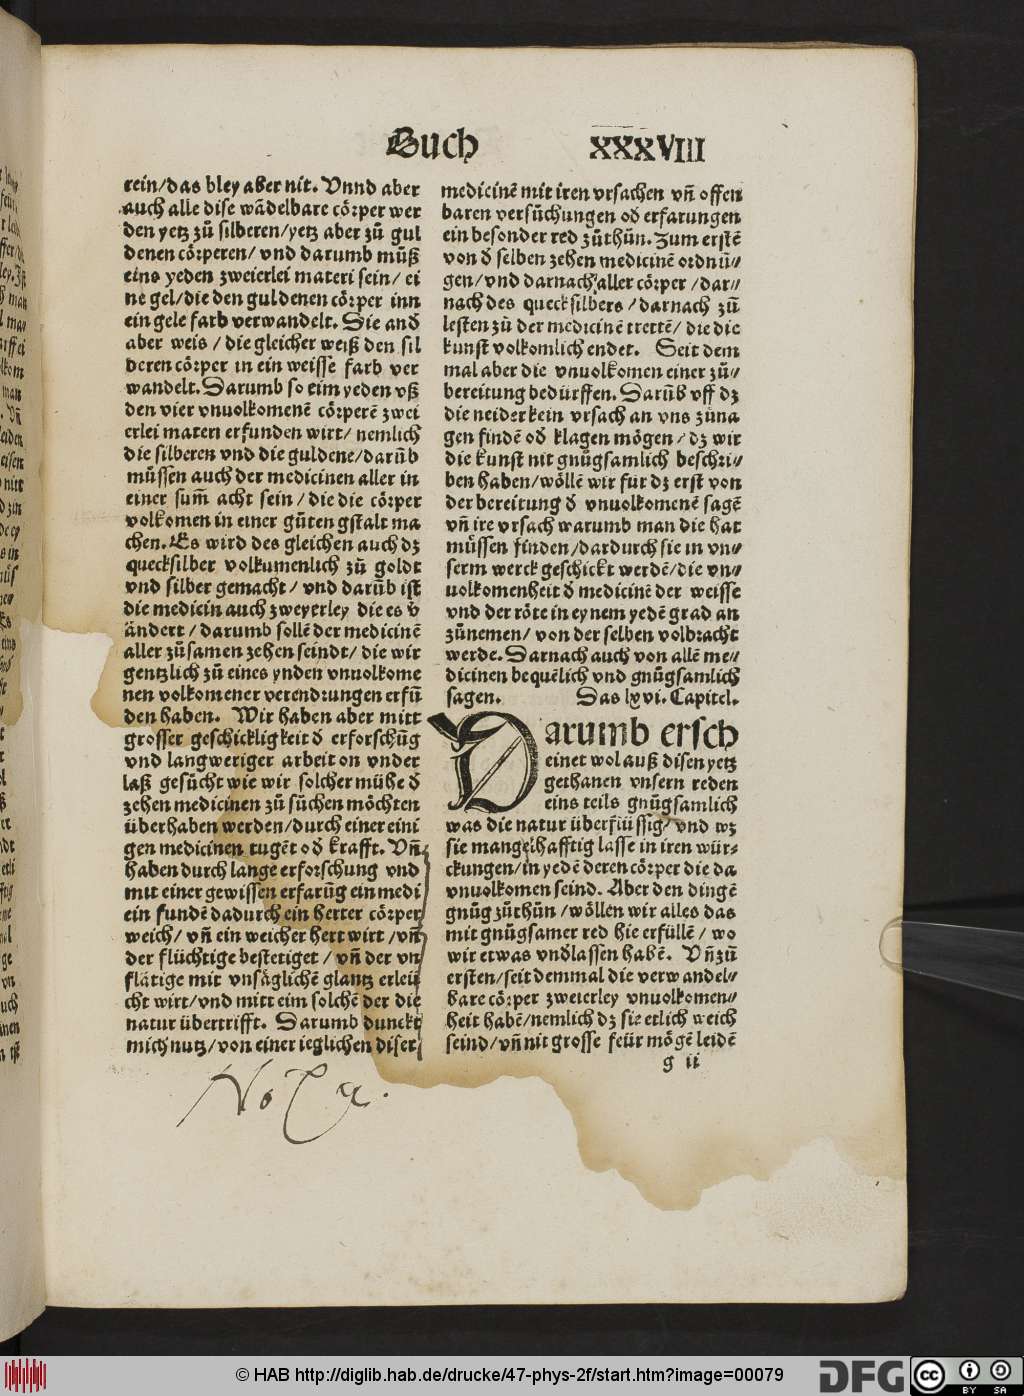 Buch XXXVIII
rein/das bley aber nit. Vnnd aber
auch alle dise wādelbare cörper wer
den yetz zů silberen/yetz aber zů gul
denen cörperen/ vnd darumb můß
eins yeden zweierlei materi sein/ ei
ne gel/die den guldenen cörper inn
ein gele farb verwandelt. Die and
aber weis / die gleicher weiß den sil
beren cörper in ein weisse farb ver
wandelt. Darumb so eim yeden vß
den vier vnuolkomenē cörperē zwei
erlei materi erfunden wirt/ nemlich
die silberen vnd die guldene/darūb
müssen auch der medicinen aller in
einer sum̄ acht sein/die die cörper
volkomen in einer gůten gstalt ma
chen. Es wird des gleichen auch dz
quecksilber volkumenlich zů goldt
vnd silber gemacht/ vnd darūb ist
die medicin auch zweyerley die es v̄
ändert/darumb sollē der medicinē
aller zůsamen zehen seindt/die wir
gentzlich zů eines ynden vnuolkome
nen volkomener verendrungen erfū
den haben. Wir haben aber mitt
grosser geschickligkeit đ erforschūg
vnd langweriger arbeit on vnder
laß gesůcht wie wir solcher mühe đ
zehen medicinen zů sůchen möchten
überhaben werden/durch einer eini
gen medicinen tugēt od krafft. Vn̄
haben durch lange erforschung vnd
mit einer gewissen erfarūg ein medi
ein fundē dadurch ein herter cörper
weich/ vn̄ ein weicher hert wirt/vn̄
der flüchtige bestetiget/ vn̄ der vn
flätige mit vnsäglichē glantz erleü
cht wirt/vnd mitt eim solchē der die
natur übertrifft. Darumb dunckt
mich nutz/von einer ieglichen diser
medicinē mit iren vrsachen vn̄ offen
baren versůchungen od erfarungen
ein besonder red zůthůn. Zum erstē
von đ selben zehen medicinē ordnū⸗
gen/vnd darnach aller cörper/dar⸗
nach des quecksilbers/darnach zů
lesten zů der medicinē trettē/die die
kunst volkomlich endet. Seit dem
mal aber die vnuolkomen einer zů⸗
bereitung bedürffen. Darūb vff dz
die neider kein vrsach an vns zůna
gen findē od klagen mögen/dz wir
die kunst nit gnůgsamlich beschri⸗
ben haben/wöllē wir für dz erst von
der bereitung đ vnuolkomenē sagē
vn̄ ire vrsach warumb man die hat
müssen finden/dardurch sie in vn⸗
serm werck geschickt werdē/die vn⸗
uolkomenheit đ medicinē der weisse
vnd der röte in eynem yedē grad an
zůnemen/von der selben volbracht
werde. Darnach auch von allē me⸗
dicinen bequēlich vnd gnůgsamlich
sagen. Das lxvi. Capitel.
Darumb ersch
einet wol auß disen yetz
gethanen vnsern reden
eins teils gnůgsamlich
was die natur überflüssig/vnd wz
sie mangelhafftig lasse in iren wür⸗
ckungen/in yedē deren cörper die da
vnuolkomen seind. Aber den dingē
gnůg zůthůn/wöllen wir alles das
mit gnůgsamer red hie erfüllē/wo
wir etwas vnđlassen habē. Vn̄ zů
ersten/seit demmal die verwandel⸗
bare cörper zweierley vnuolkomen⸗
heit habē/nemlich dz sie etlich weich
seind/vn̄ nit grosse feür mögē leidē
g ii
© HAB http://diglib.hab.de/drucke/47-phys-2f/start.htm?image=00079
DFG
cc BY SA